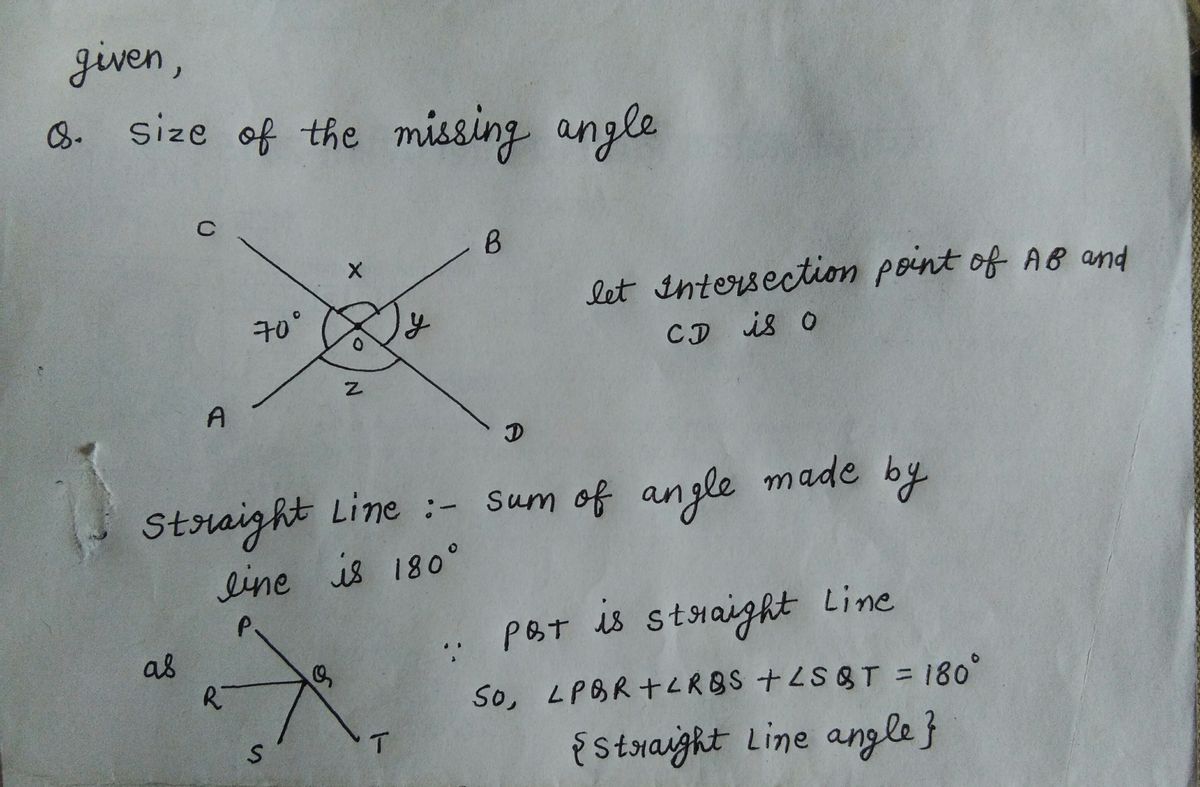 given,
Q. Size of the missing angle
C
B
X
70°
y
O
Z
A
D
let Intersection point of AB and
CD is O
Straight Line :- Sum of angle made by
line is 180°
as
P
Q
R
S
T
∵ PQT is straight Line
So, ∠PQR + ∠RQS + ∠SQT = 180°
{Straight Line angle}